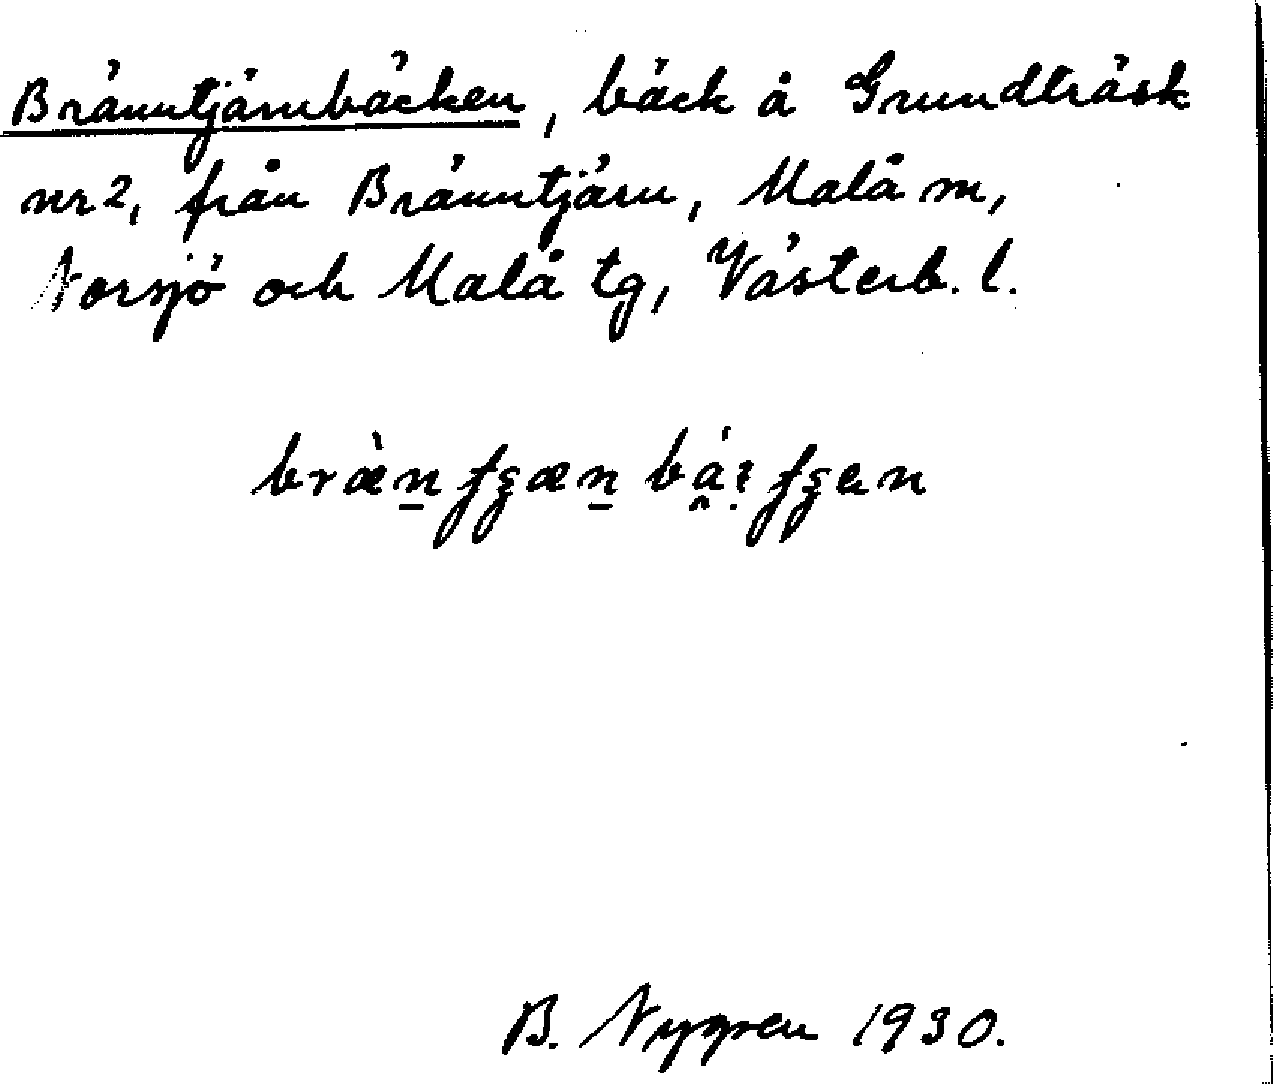 Bränntjärnbäcken, bäck å Grundträsk
nr 2, från Bränntjärn, Malå m,
Norsjö och Malå tg, Västerb. l.
B. Nygren 1930.